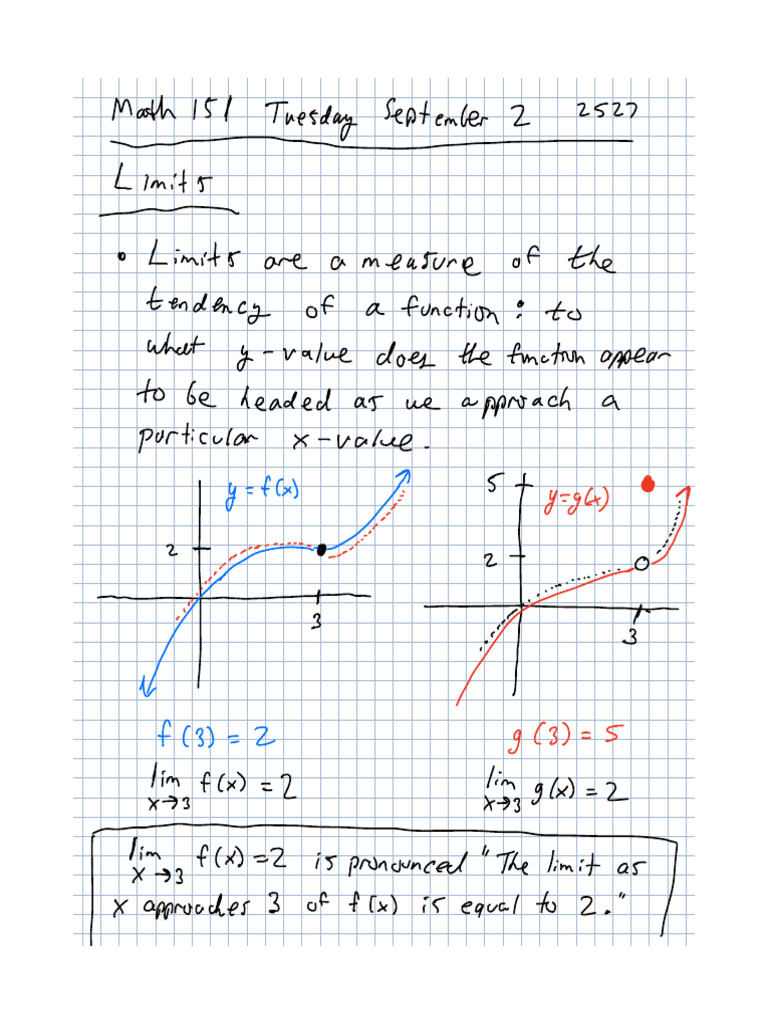 Math 151 Tuesday September 2 2527
Limits
• Limits are a measure of the
tendency of a function: to
what y-value does the function appear
to be headed as we approach a
particular x-value.
y = f(x)
2
3
5
y=g(x)
2
3
f(3) = 2
g(3) = 5
lim f(x) = 2
x→3
lim g(x) = 2
x→3
lim f(x) = 2 is pronounced "The limit as
x→3
x approaches 3 of f(x) is equal to 2."